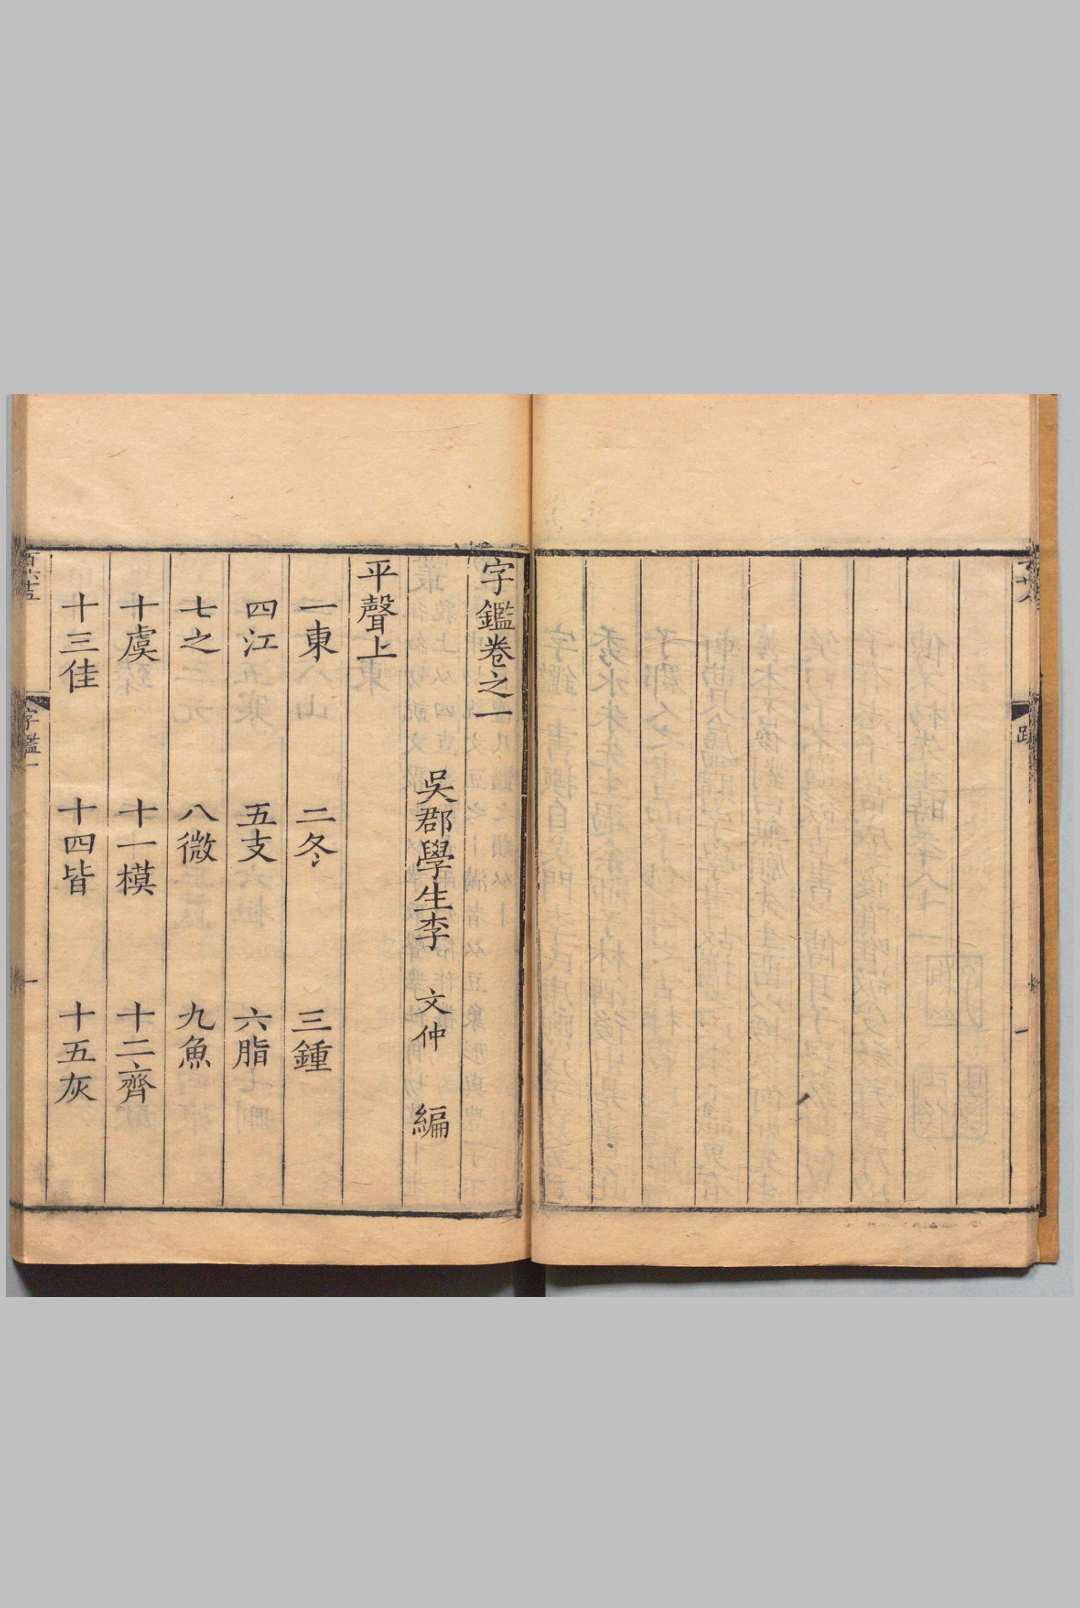 字鑑卷之一
吳郡學生李 文仲 編
平聲上
一東 二冬 三鍾
四江 五支 六脂
七之 八微 九魚
十虞 十一模 十二齊
十三佳 十四皆 十五灰
字鑑一
一